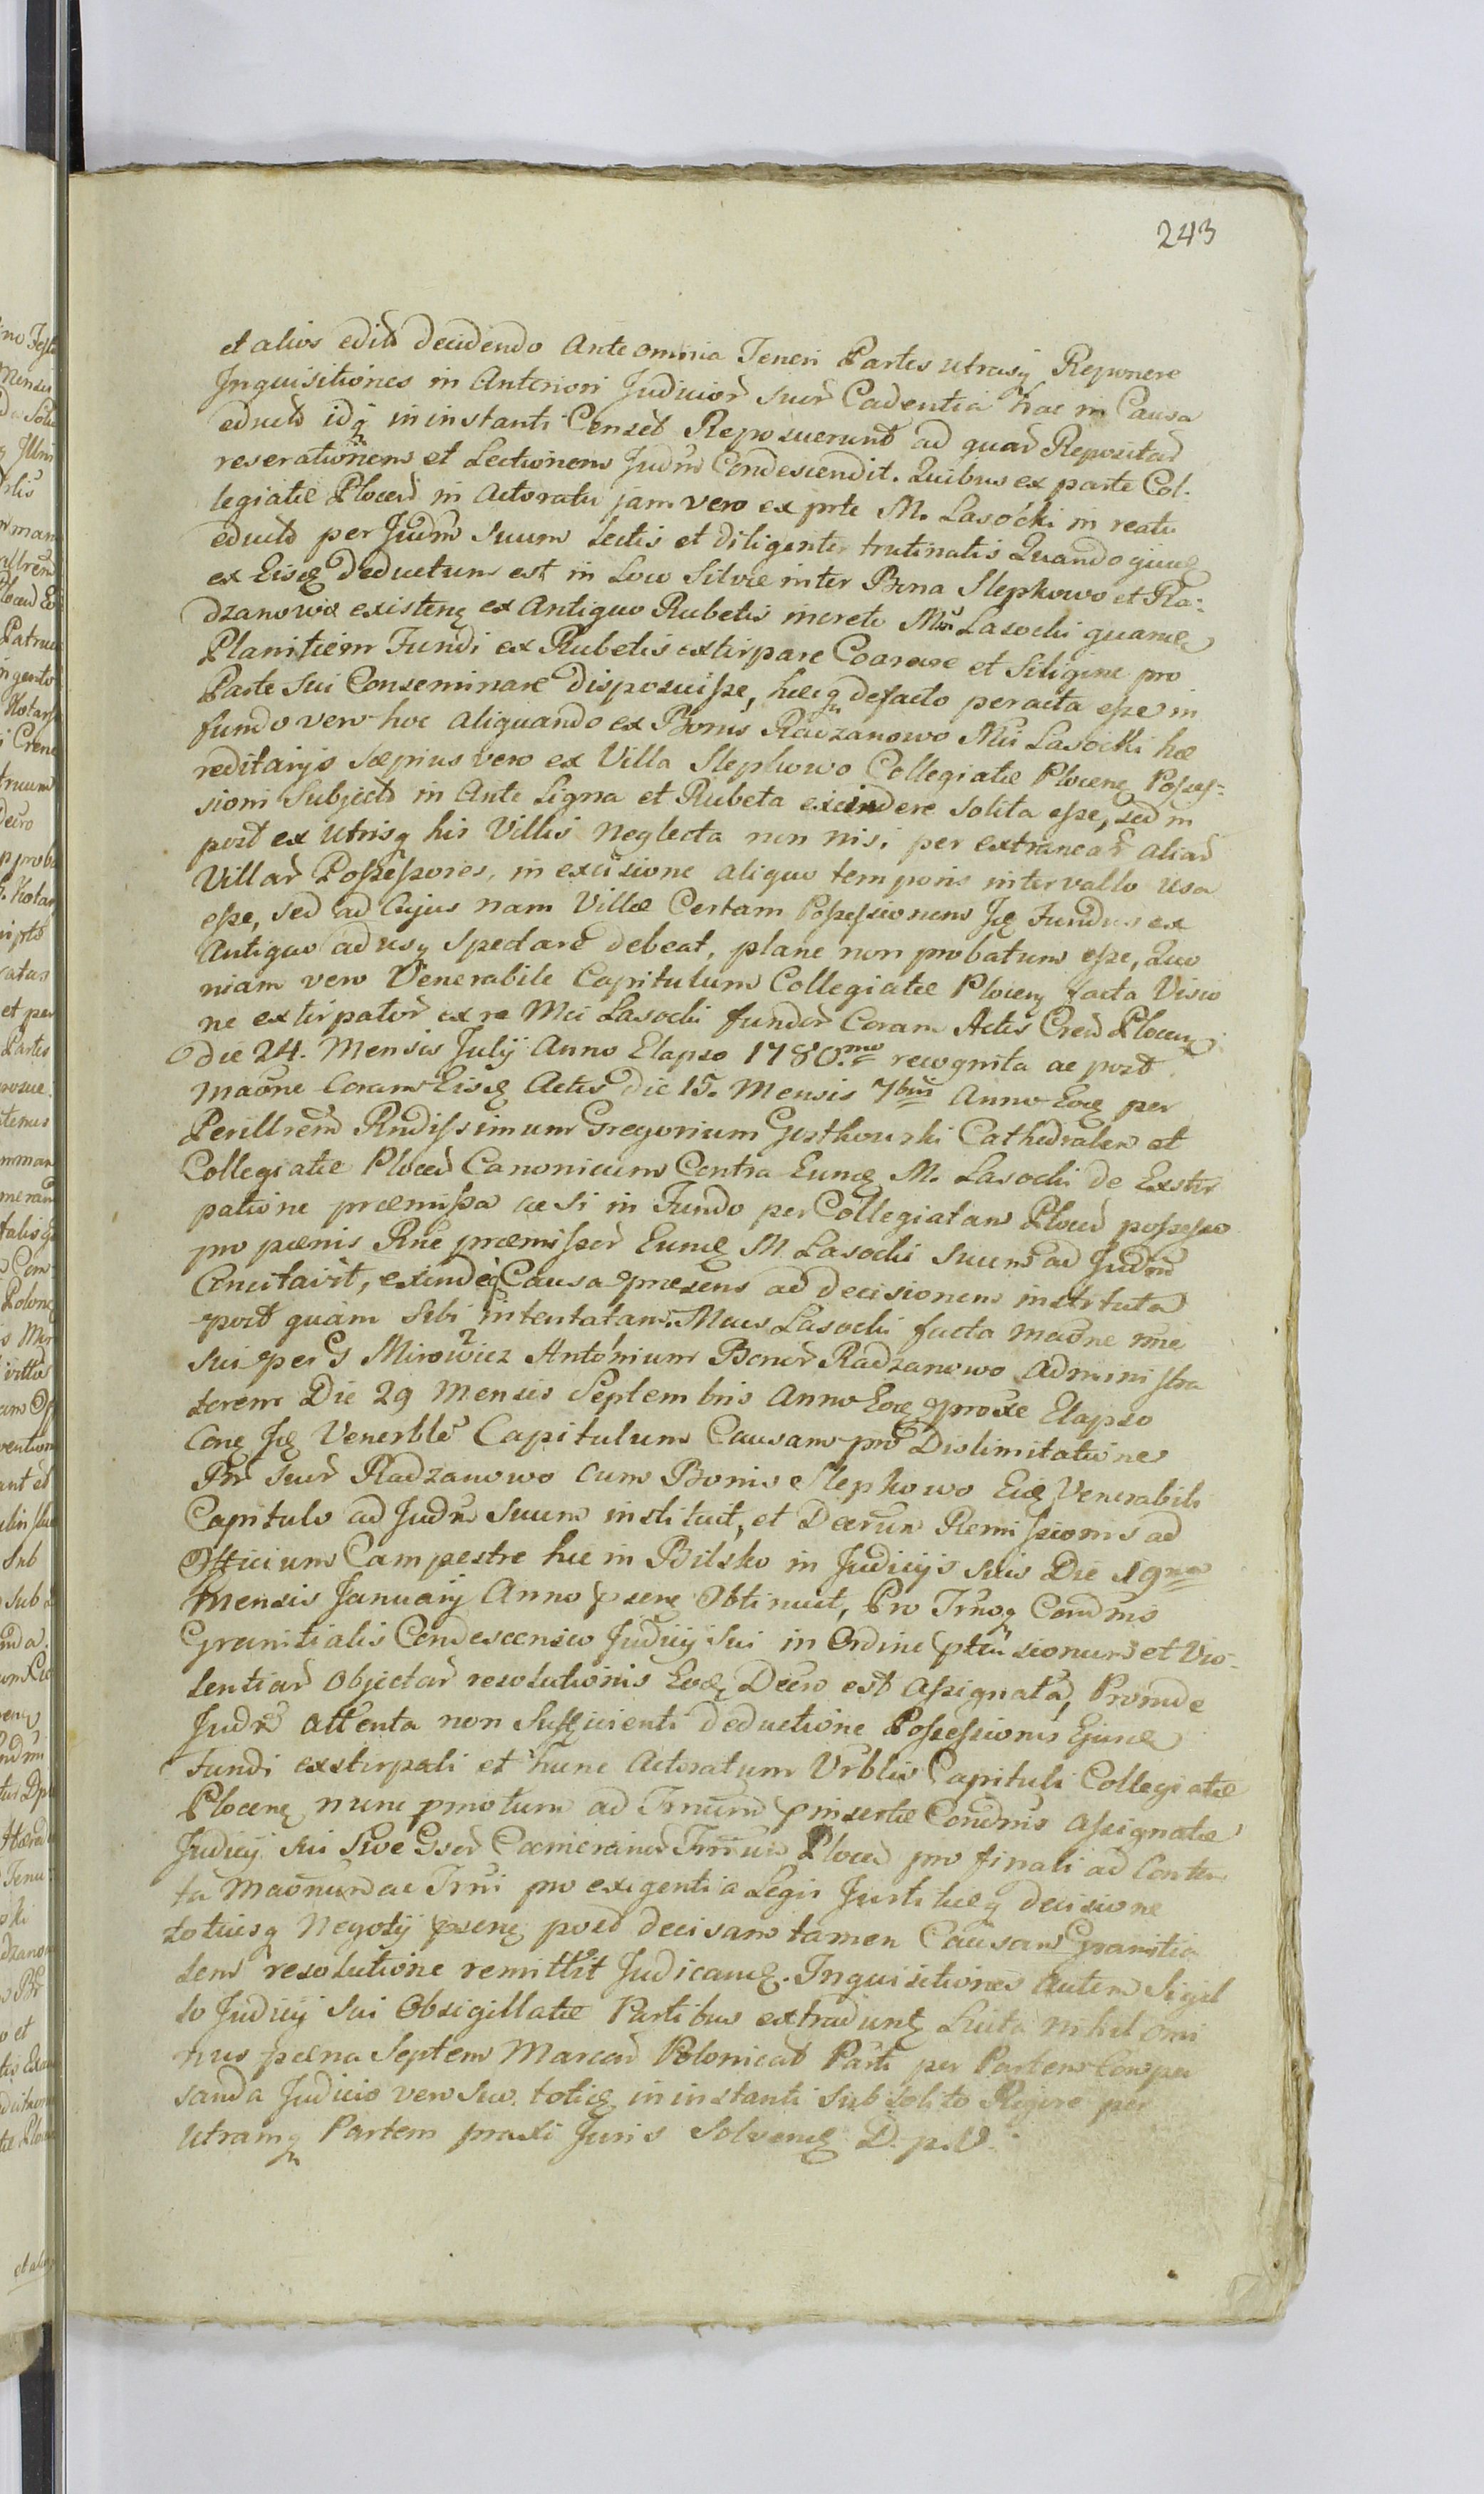 243
et alios edit̄ decidendo Ante omnia Teneri Partes utrasq̨ Reponere
Inquisitiones in Anteriori Judicior̄ suor̄ Cadentia hac in Causa
educt̄ idq̨ in instanti Censet̄ Reposuerunt ad quar̄ Repositar̄
reserationem et Lectionem Judm̄ Condescendit. Quibus ex parte Col-
legiatæ Plocen̄ in Actoratu jam vero ex prte M. Lasocki in reatu
educt̄ per Judm̄ Suum Lectis et diligenter trutinatis Quandoquidȩ
ex Eisdȩ deductum est in Loco Silvæ inter Bona Slepkowo et Ra-
dzanowo existenȩ ex Antiquo Rubetis increto Mm̄ Lasocki quamdȩ
Planitiem Fundi ex Rubetis extirpare Coarare et Siligine pro
Parte sui Conseminare disposuisse, hæcq̨ defacto peracta esse in
fundo vero hoc aliquando ex Bonis Radzanowo Mci Lasocki hæ
reditarijs sæpius vero ex Villa Slepkowo Collegiatæ Plocenȩ Posses-
sioni Subject̄ in Ante Ligna et Rubeta excindere solita esse, sed in
post ex utrisq̨ his Villis neglecta non nisi per extranear̄ aliar̄
Villar̄ Possessores, in excisione aliquo temporis intervallo usa
esse, sed ad Cujus nam Villæ Certam Possessionem Jȩ Fundus ex
Antiquo ad usq̨ spectare debeat, plane non probatum esse, Quo
niam vero Venerabile Capitulum Collegiatæ Plocenȩ facta Visio
ne extirpator̄ ex re Mci Lasocki fundor̄ Coram Actis Cren̄ Plocen̄
Die 24. Mensis Julij Anno Elapso 1780.mo recognita ac post
maōne Coram Eisdȩ Actis die 15. Mensis 7bris Anno Eodȩ per
Perillrem̄ Rndissimum Gregorium Gostkowski Cathedralem et
Collegiatæ Plocen̄ Canonicum Contra Eundȩ M. Lasocki de Exstir
patione præmissa ac si in Fundo per Collegiatam Plocen̄ possesso
pro pænis Rne præmissor̄ Eundȩ M. Lasocki suum ad Judm̄
Concitavit, exindeq̨ Causa præsens ad decisionem instituta
post quam sibi intentatam. Mcus Lasocki facta maōne nn̄e
sui per G Mirowicz Antonium Bonor̄ Radzanowo Administra
torem Die 29 Mensis Septembris Anno Eodȩ proxe Elapso
Conȩ Jȩ Venerble Capitulum Causam pro Dislimitatione
Br̄ suor̄ Radzanowo cum Bonis Slepkowo Eidȩ Venerabili
Capitulo ad Judm̄ Suum instituit, et Decrum Remissionis ad
Officium Campestre huc in Bilsko in Judicijs suis Die 19na
Mensis Januarij Anno psenȩ Obtinuit, Pro Trnoq̨ Condmis
Granitialis Condescensio Judicij Sui in Ordine ptensionum et Vio-
lentiar̄ Objectar̄ resolutionis Eodȩ Decro est Assignata, Proinde
Judm̄ attenta non sufficienti deductione Possessionis Ejusdȩ
Fundi exstirpati et hunc Actoratum Vrblis Capituli Collegiatæ
Plocenȩ nunc pmotum ad Trnum pinsertæ Condmis Assignatæ
Judicij sui sive Gser̄ Camerariar̄ Trnum Plocen̄ pro finali ad Conten
ta Maōnum ac Trni pro exigentia Legis Justitiæq̨ decisione
totiusq̨ Negotij psenȩ post decisam tamen Causam Granitia
lem resolutione remittit Judicandȩ. Inquisitiones autem Sigil
lo Judicij sui Obsigillatæ Partibus extraduntȩ Luita nihil omi
nus pæna Septem Marcar̄ Polonical̄ Parti per Partem Compen
sanda Judicio vero suo totidȩ in instanti sub solito Rigore per
Utramq̨ Partem praxi Juris Solvendȩ D. p. V.